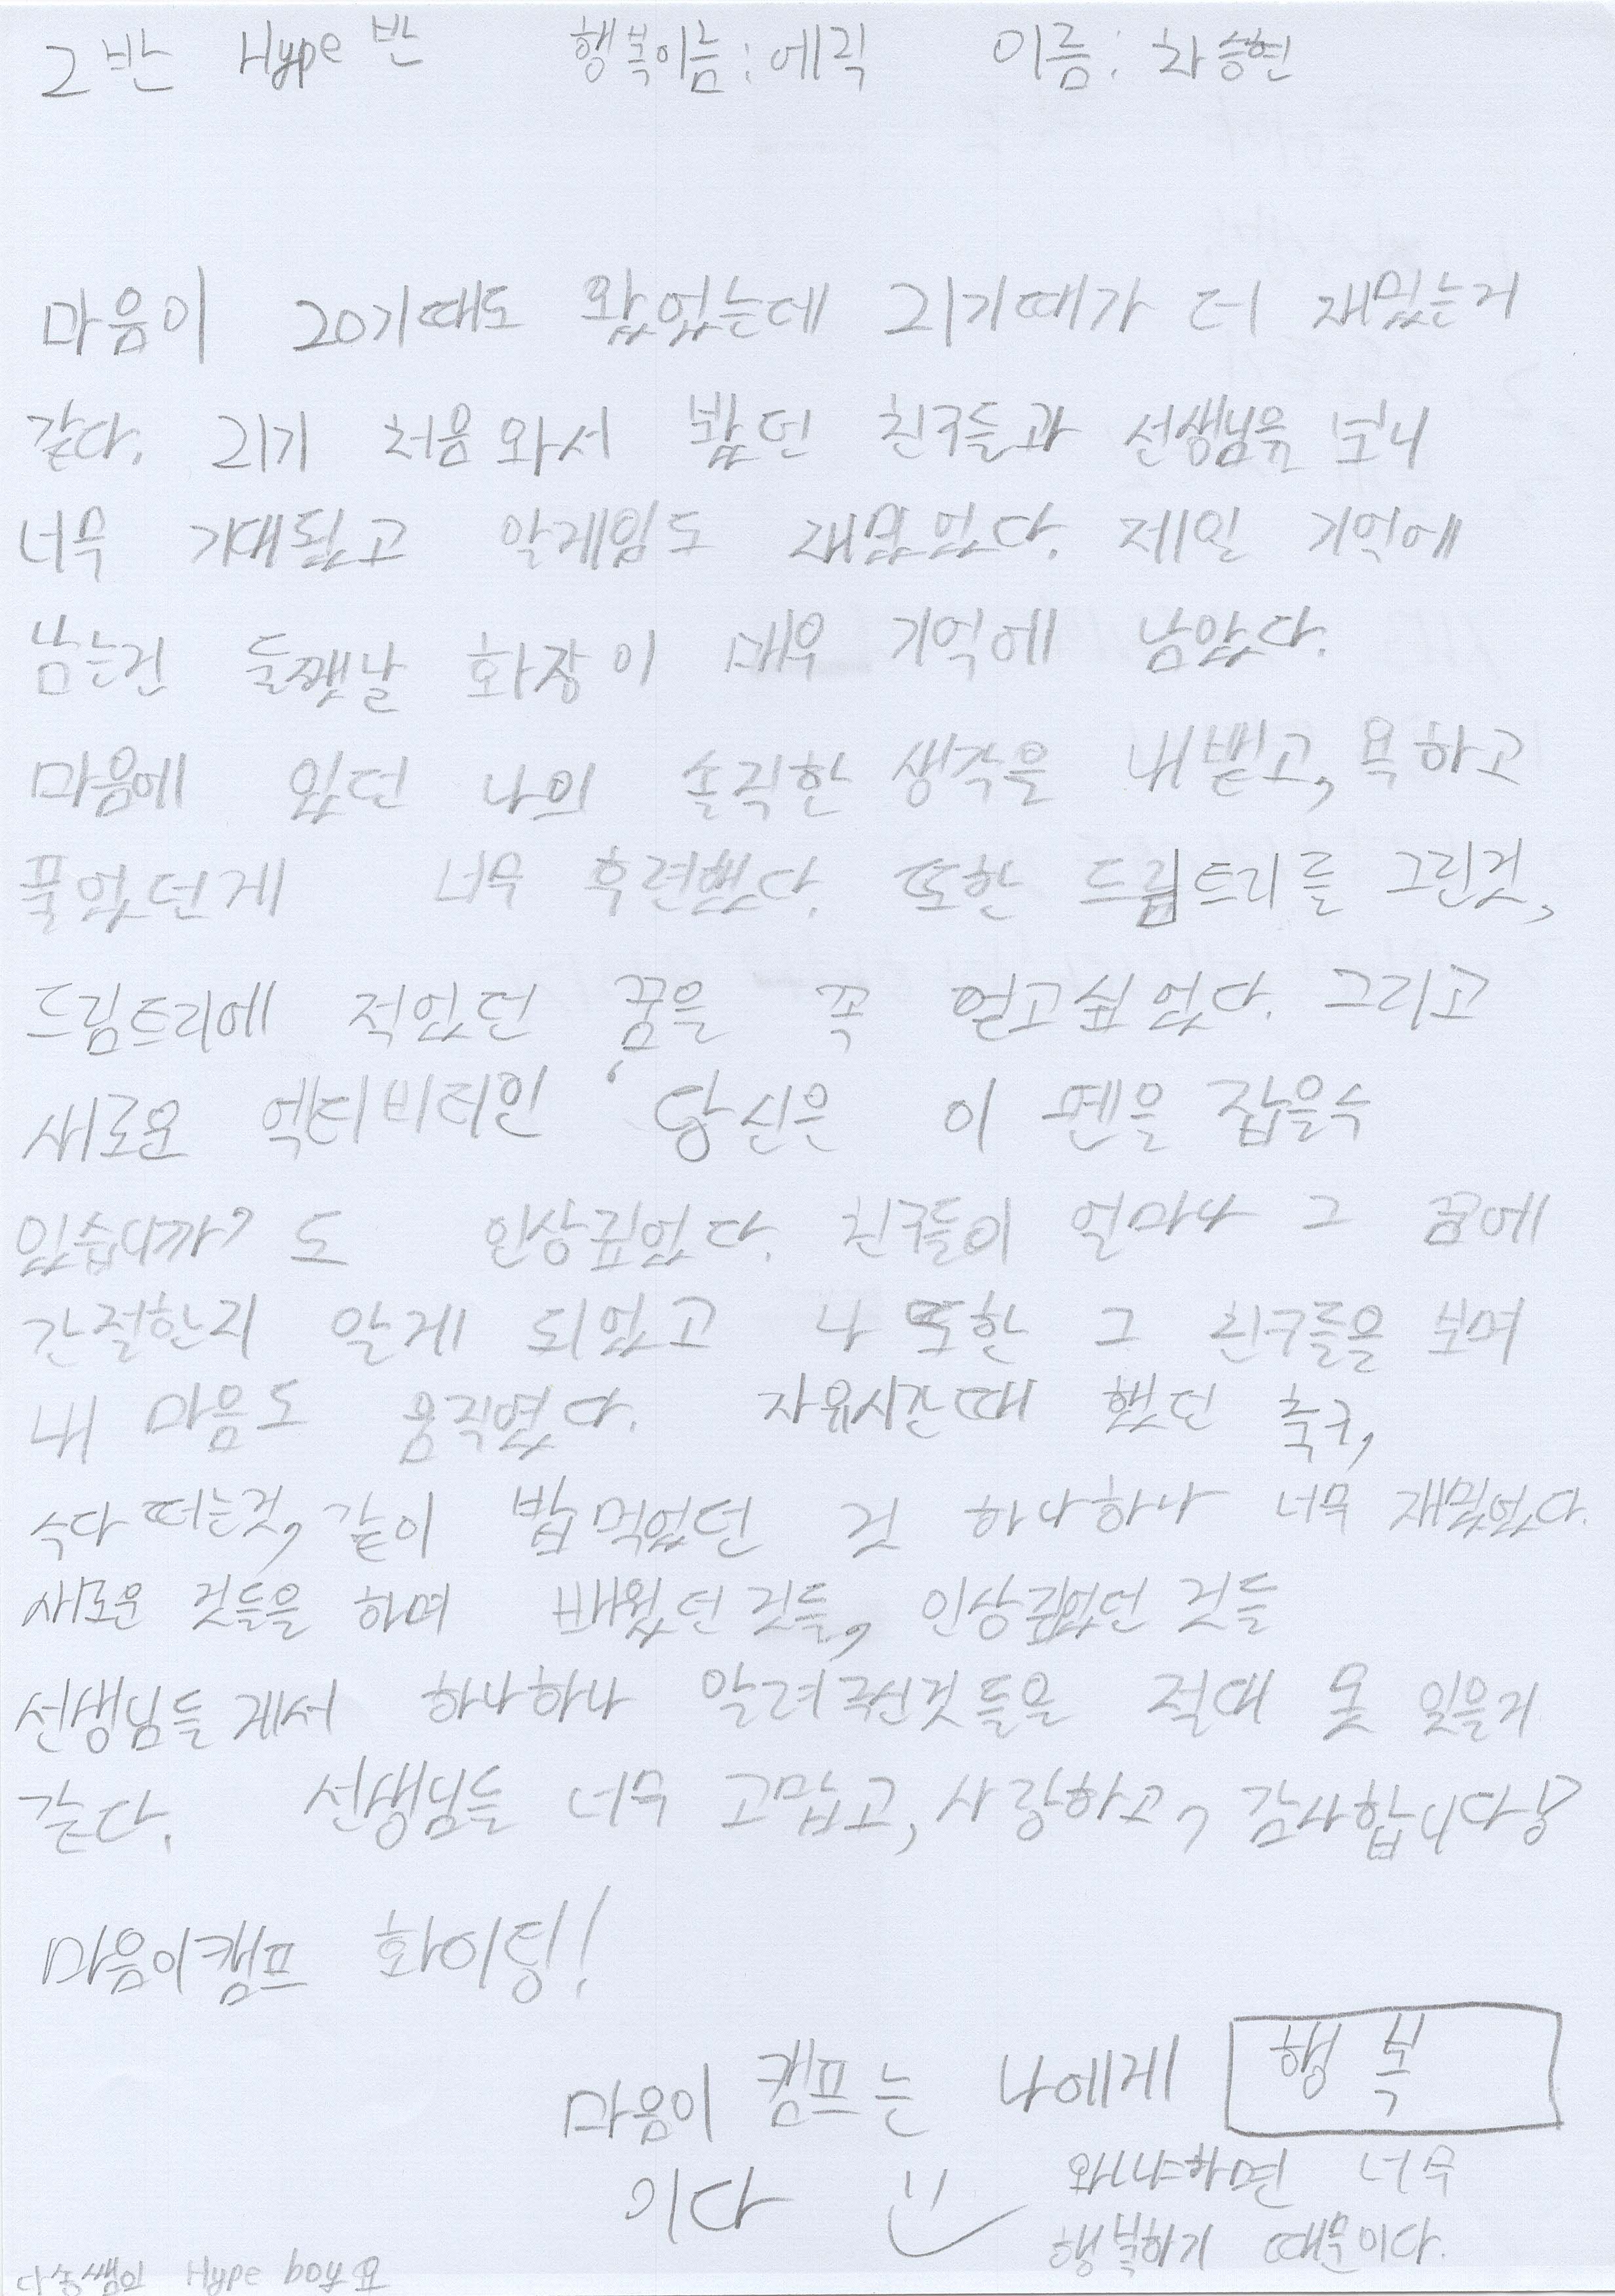 2반 Hype반 행복이름: 에릭 이름: 차승현
마음이 20기때도 왔었는데 21기때가 더 재밌는거
같다. 21기 처음와서 봤던 친구들과 선생님을 보니
너무 기대됬고 악게임도 재밌었다. 제일 기억에
남는건 둘쨋날 화장이 매우 기억에 남았다.
마음에 있던 나의 솔직한 생각을 내뱉고, 욕하고
풀었던게 너무 후련했다. 또한 드림트리를 그린것,
드림트리에 적었던 꿈을 꼭 얻고싶었다. 그리고
새로운 엑티비티인 '당신은 이 펜을 잡을수
있습니까?' 도 인상깊었다. 친구들이 얼마나 그 꿈에
간절한지 알게 되었고 나 또한 그 친구들을 보며
내 마음도 움직였다. 자유시간때 했던 축구,
수다 떠는것, 같이 밥먹었던 것 하나하나 너무 재밌었다.
새로운 것들을 하며 배웠던것들, 인상깊었던 것들
선생님들게서 하나하나 알려주신것들을 적대 못 잊을거
같다. 선생님들 너무 고맙고, 사랑하고, 감사합니다!
마음이캠프 화이팅!
마음이 캠프는 나에게 행복
이다
왜냐하면 너무
행복하기 때문이다.
다송쌤의 Hype boy요